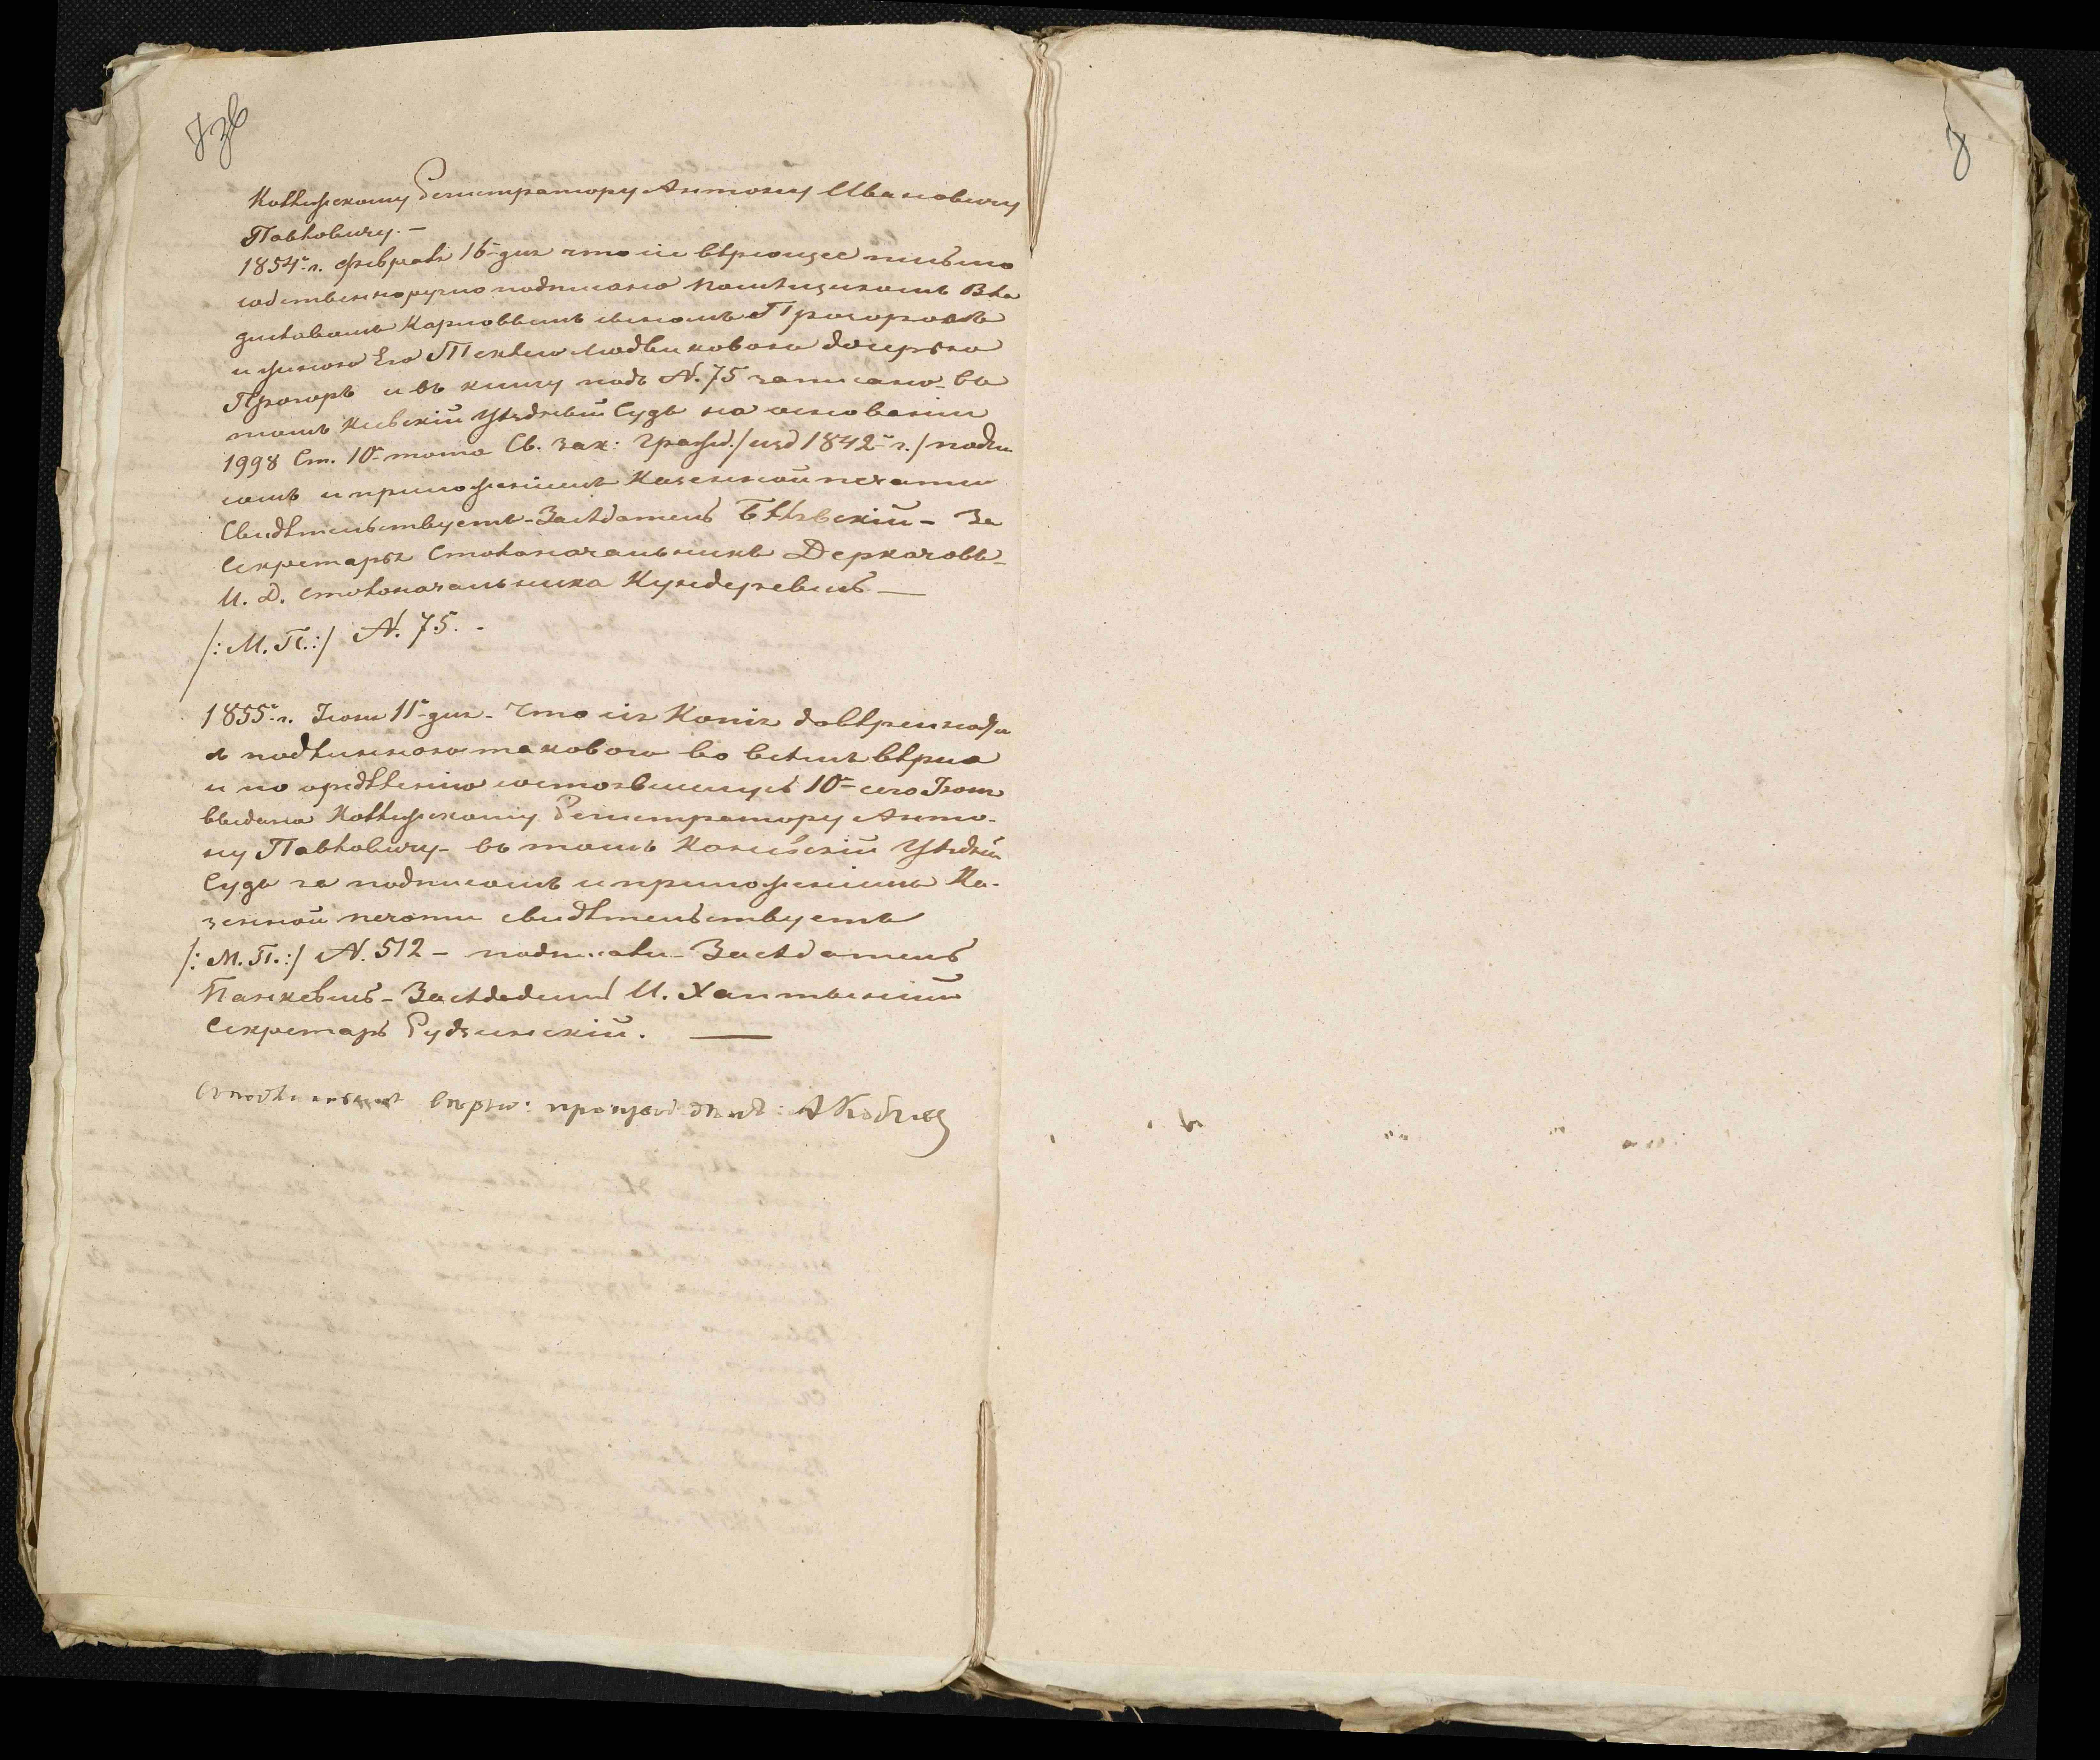 7 зв
Коллежскому Регистратору Антону Ивановичу
Павловичу. —
1854 г. февраля 16 дня что сіе вѣрющее письмо
собственноручно подписано Помѣщикомъ Вла
диславомъ Карловымъ сыномъ
и женою Его Людвиковою дочерью
и въ книгу подъ N. 75 записано въ
томъ Кіевскій Уѣздный Судъ на основаніи
1998 Ст. 10 тома Св. зак: Гражд. / изд 1842 г. / подпи
сомъ и приложеніемъ Казенной печати
Свидѣтельствуетъ - Засѣдатель - За
Секретаря Столоначальникъ Деркачовъ -
И. Д. Столоначальника —
/: М. П. :/ N. 75. -
1855 г. Іюня 11 дня - Что сія Копія довѣренности
съ подлинною таковою во всемъ вѣрна
и по опредѣленію состоявшемусь 10 сего Іюня
выдана Коллежскому Регистратору Анто-
ну Павловичу - въ томъ Каневскій Уѣздный
Судъ за подписомъ и приложеніемъ Ка-
зенной печати свидѣтельствуетъ
/: М. П. :/ N. 512 - подписали - Засѣдатель
Панкевичъ - Засѣдатель И.
Секретарь Рудзинскій. —
Съ подлиннымъ вѣрно:
8